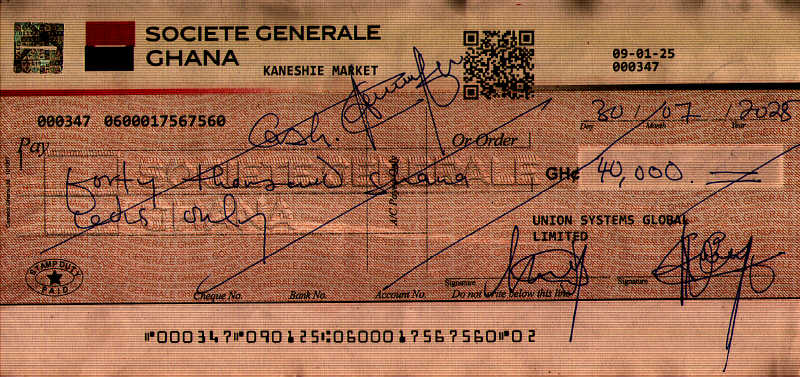 SOCIETE GENERALE
GHANA
KANESHIE MARKET
09-01-25
000347
000347 0600017567560
30 / 07 / 2025
Day Month Year
Pay Cash. Or Order
SOCIETE GENERALE
GHANA
forty thousand Ghana
Cedis only
A/C Payee Only
GH¢ 40,000. =
UNION SYSTEMS GLOBAL
LIMITED
STAMP DUTY
PAID
Signature Signature
Cheque No. Bank No. Account No. Do not write below this line
⑈000347⑈090125⑆0600017567560⑈02